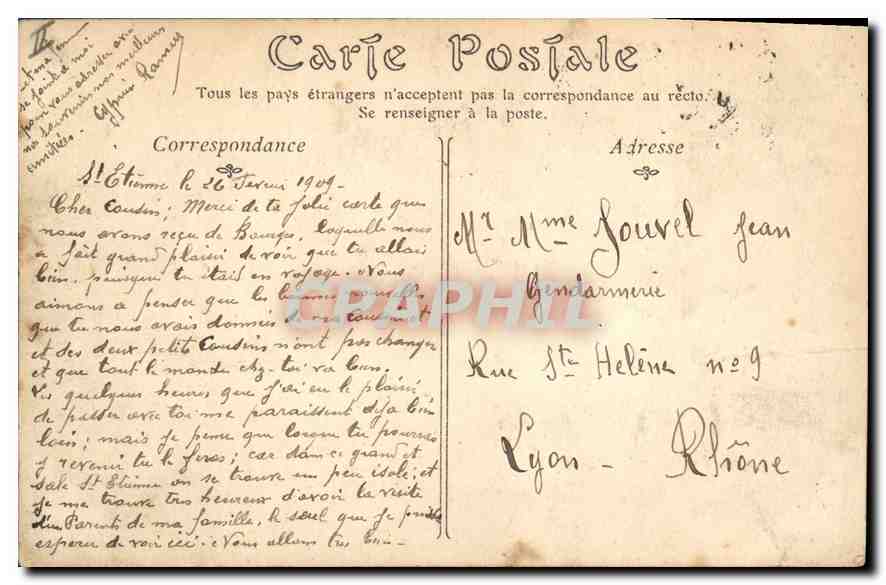 II
et ma femme
se joint à moi
pour vous adresser avec
nos souvenirs nos meilleures
amitiés.
Carte Postale
Tous les pays étrangers n'acceptent pas la correspondance au recto.
Se renseigner à la poste.
Correspondance
St Etienne le 26 Fevrier 1909-
Cher Cousin; Merci de ta jolie carte que
nous avons reçu de Bourges, laquelle nous
a fait grand plaisir de voir que tu allais
bien, puisque tu étais en voyage. Nous
aimons a penser que les bonnes nouvelles
que tu nous avais données de ma cousine et
et des deux petits Cousins n'ont pas changer
et que tout le monde chez-toi va bien.
Les quelques heures que j'ai eu le plaisir
de passer avec toi me paraissent déja bien
loin; mais je pense que lorsque tu pourras
y revenir tu le feras; car dans ce grand et
sale St Etienne on se trouve un peu isolé; et
je me trouve tres heureux d'avoir la visite
d'un Parents de ma famille, le seul que je puisse
esperer de voir ici. Nous allons tres bien-
Adresse
Mr Mme Jouvel Jean
Gendarmerie
Rue Ste Helène no 9
Lyon - Rhône
CPAPHIL